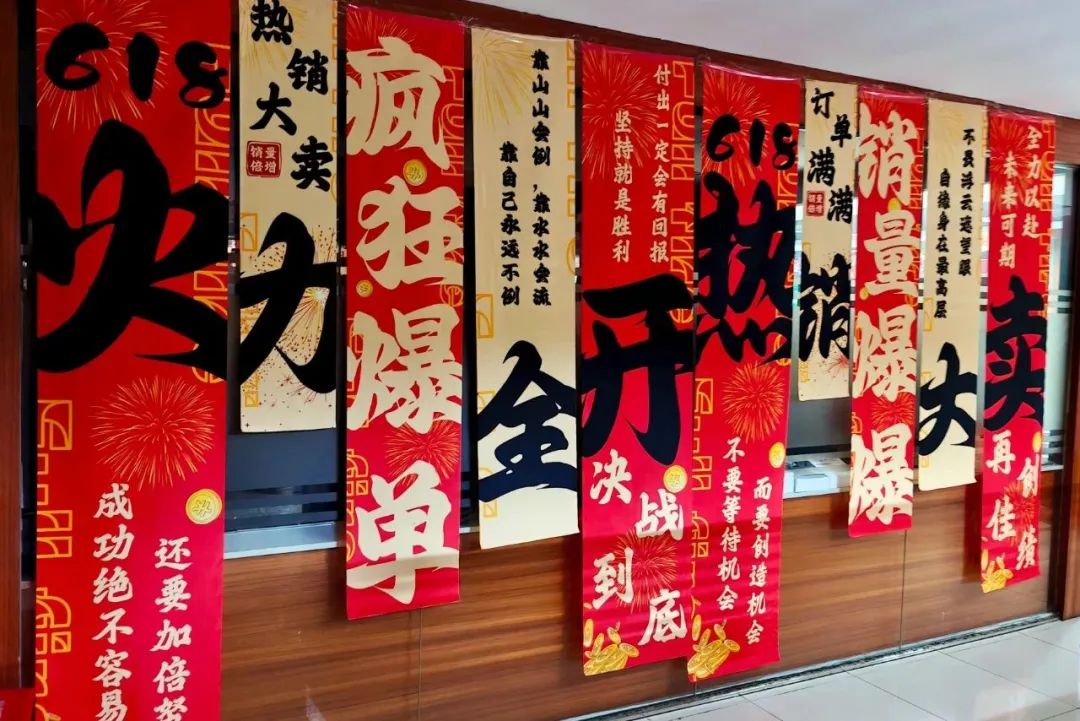 618
火
成功绝不容易
还要加倍努
热销大卖
销量倍增
力
疯狂爆单
靠山山会倒，靠水水会流
靠自己永远不倒
全
付出一定会有回报
坚持就是胜利
开
决战到底
618
热
不要等待机会
而要创造机会
订单满满
销量倍增
销
销量爆爆
不畏浮云遮望眼
自缘身在最高层
大
全力以赴
未来可期
卖
再创佳绩